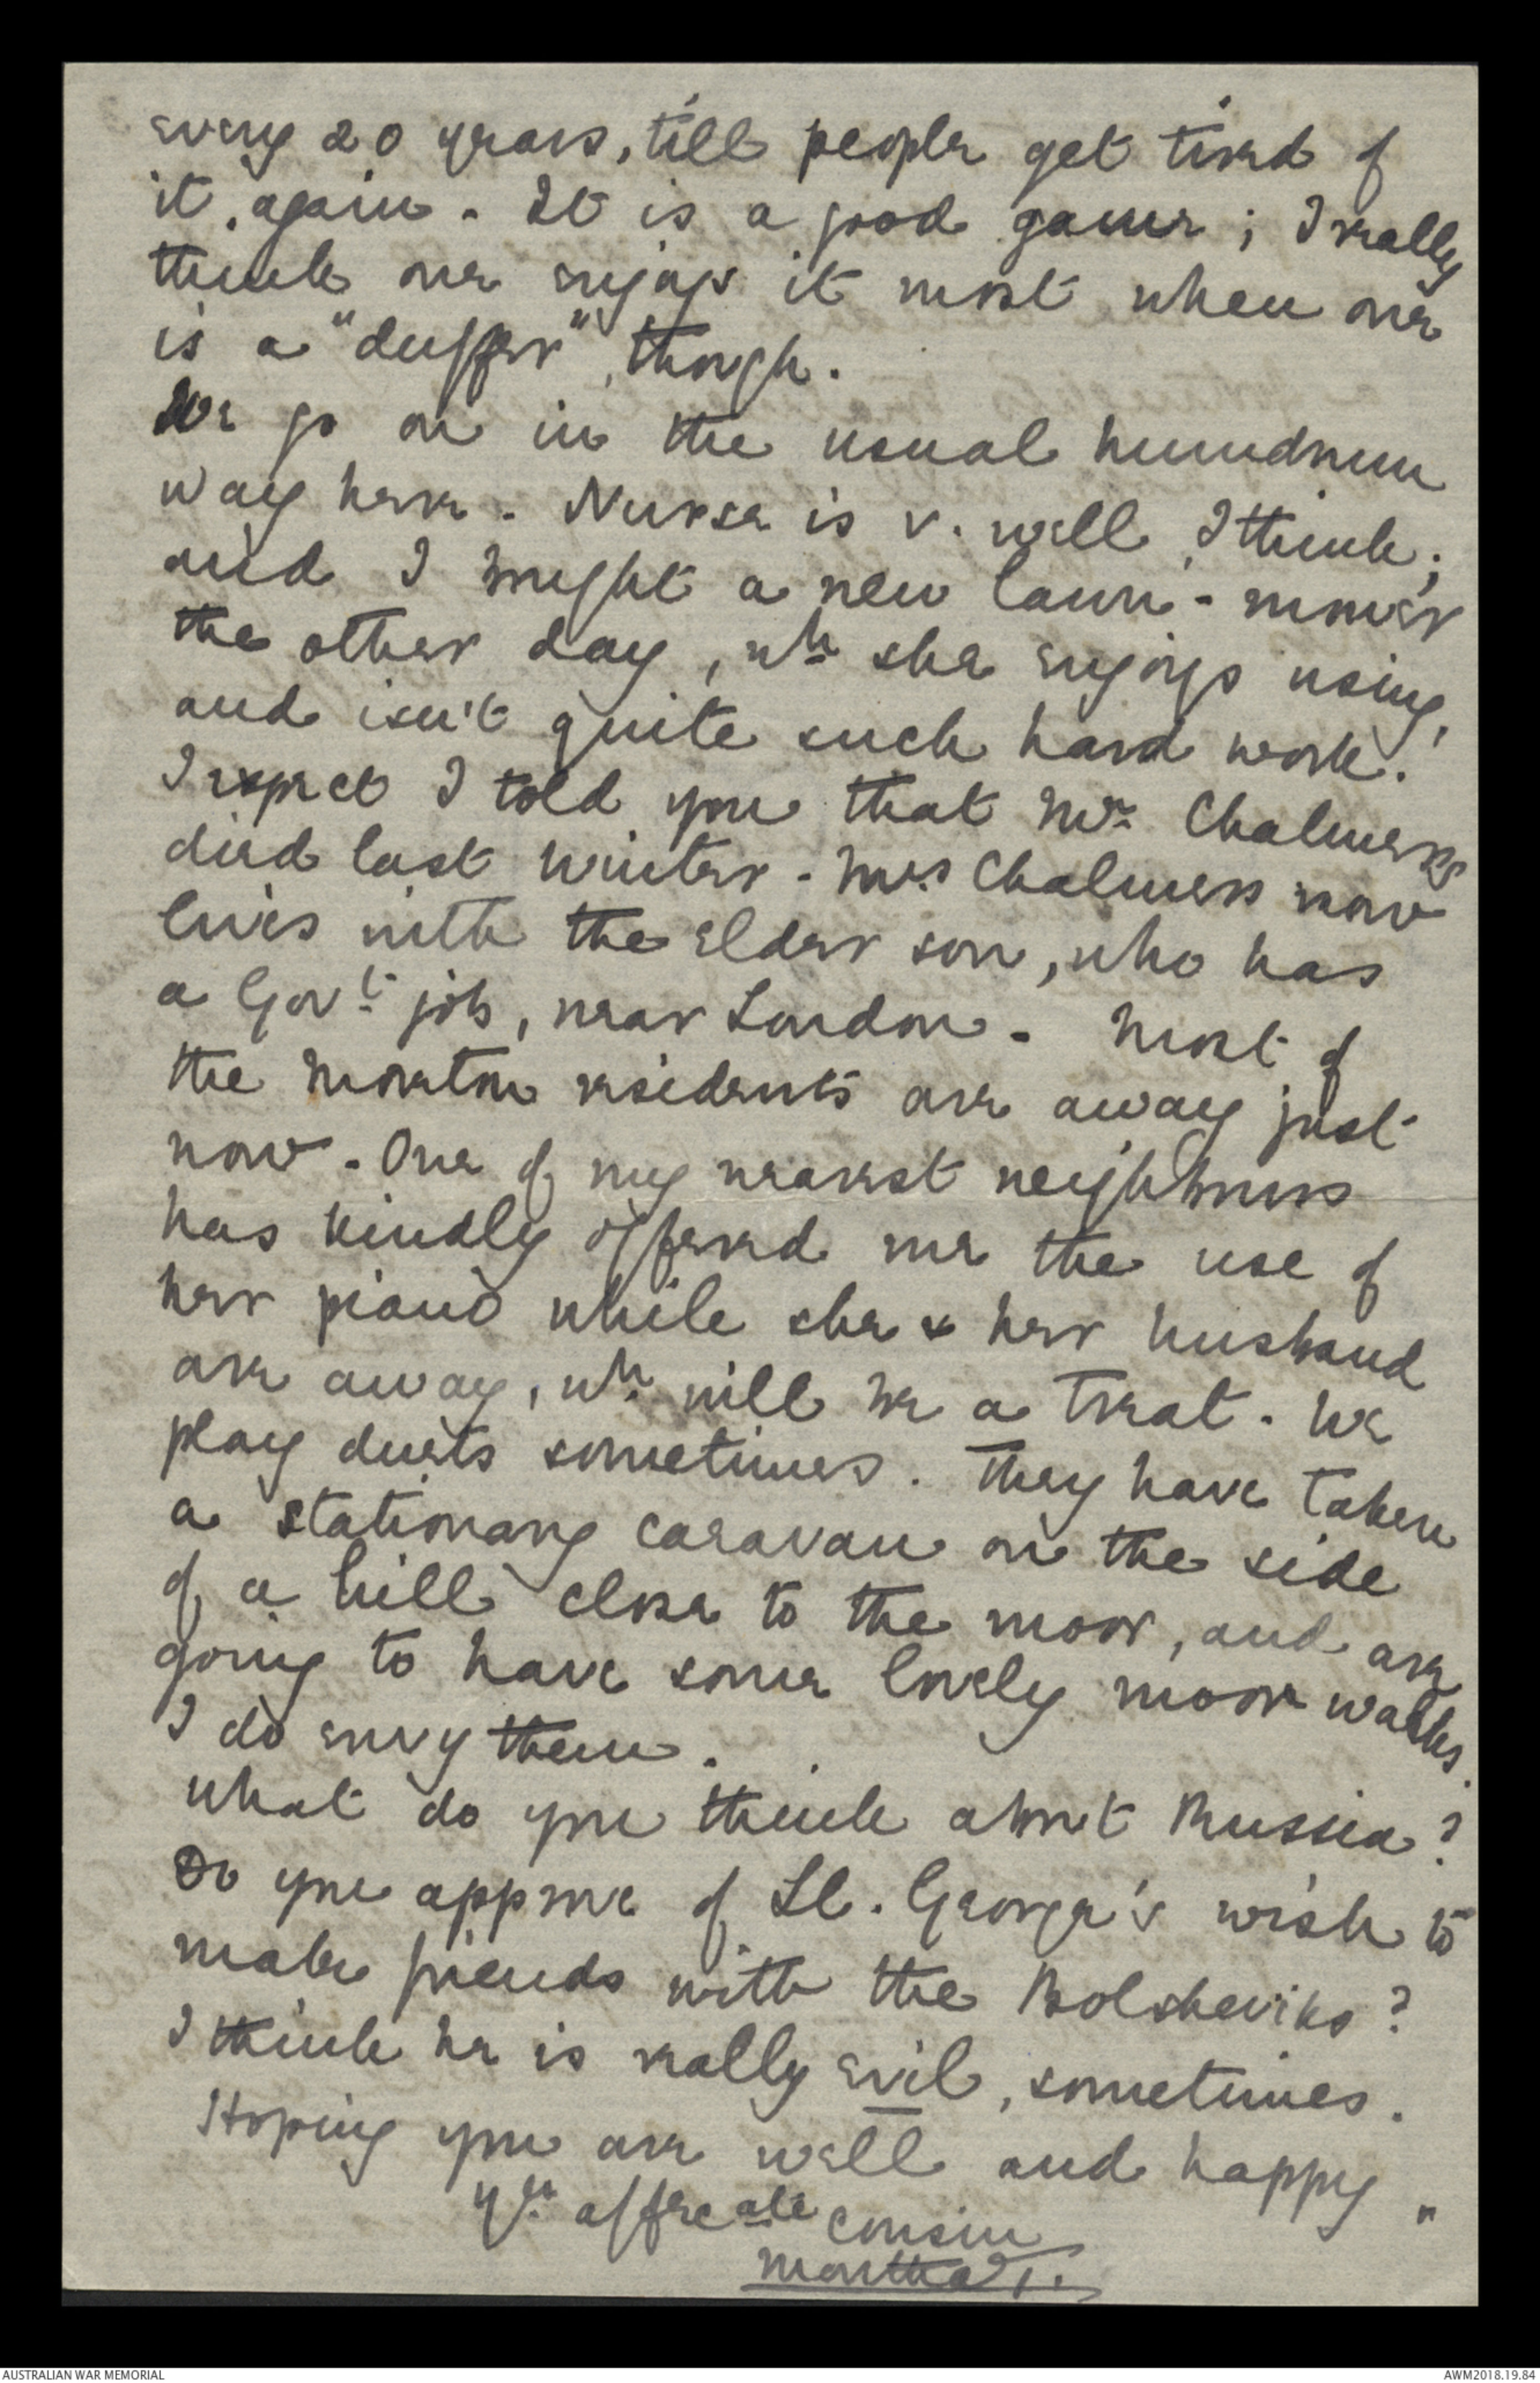 every 20 years, till people get tired of
it, again. It is a good game; I really
think one enjoys it most when one
is a "duffer", though.
We go on in the usual humdrum
way here. Nurse is v. well, I think;
and I bought a new lawn-mower
the other day, wh. she enjoys using,
and isn't quite such hard work.
I expect I told you that Mr. Chalmers
died last winter. Mrs Chalmers now
lives with the elder son, who has
a Govt. job, near London. Most of
the Moreton residents are away just
now. One of my nearest neighbours
has kindly offered me the use of
her piano while she & her husband
are away, wh. will be a treat. We
play duets sometimes. They have taken
a stationary caravan on the side
of a hill close to the moor, and are
going to have some lovely moor walks.
I do envy them.
What do you think about Russia?
Do you approve of Ll. George's wish to
make friends with the Bolsheviks?
I think he is really evil, sometimes.
Hoping you are well and happy,
Yr. affecate cousin
Martha T.
AUSTRALIAN WAR MEMORIAL
AWM2018.19.84